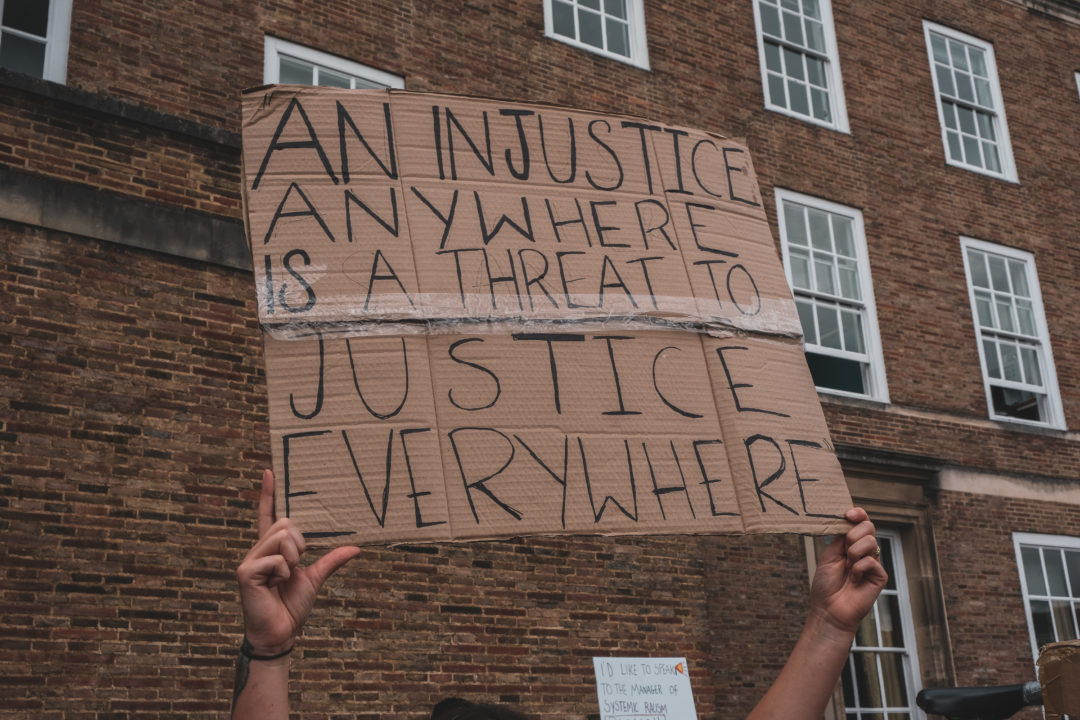 "AN INJUSTICE
ANYWHERE
IS A THREAT TO
JUSTICE
EVERYWHERE"
I'D LIKE TO SPEAK
TO THE MANAGER OF
SYSTEMIC RACISM